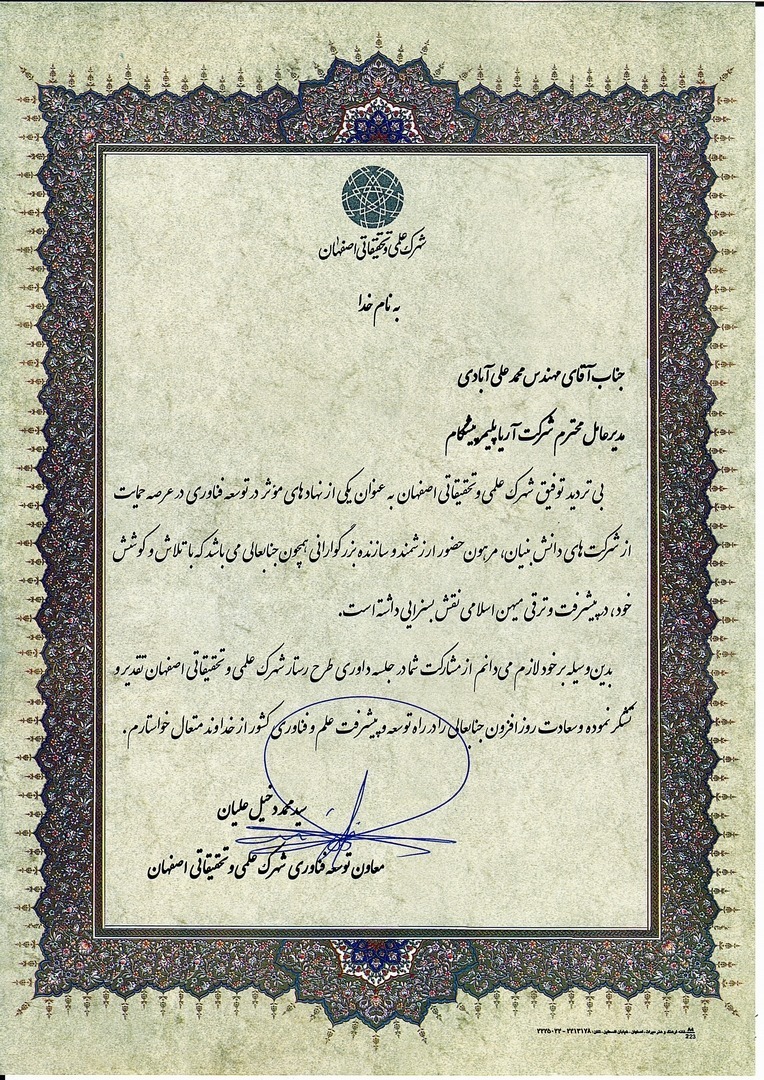 شهرک علمی و تحقیقاتی اصفهان
به نام خدا
جناب آقای مهندس محمد علی آبادی
مدیرعامل محترم شرکت آریا پلیمر پیشگام
بی تردید توفیق شهرک علمی و تحقیقاتی اصفهان به عنوان یکی از نهادهای مؤثر در توسعه فناوری در عرصه حمایت
از شرکت های دانش بنیان، مرهون حضور ارزشمند و سازنده بزرگوارانی همچون جنابعالی می باشد که با تلاش و کوشش
خود، در پیشرفت و ترقی میهن اسلامی نقش بسزایی داشته است.
بدین وسیله بر خود لازم می دانم از مشارکت شما در جلسه داوری طرح رستار شهرک علمی و تحقیقاتی اصفهان تقدیر و
تشکر نموده و سعادت روز افزون جنابعالی را در راه توسعه و پیشرفت علم و فناوری کشور از خداوند متعال خواستارم.
سید محمد دخیل علیان
معاون توسعه فناوری شهرک علمی و تحقیقاتی اصفهان
خانه فرهنگ و هنر میراث، اصفهان، خیابان فلسطین، تلفن: ۲۲۱۳۱۷۸ - ۲۲۲۵۰۲۲
A4
223